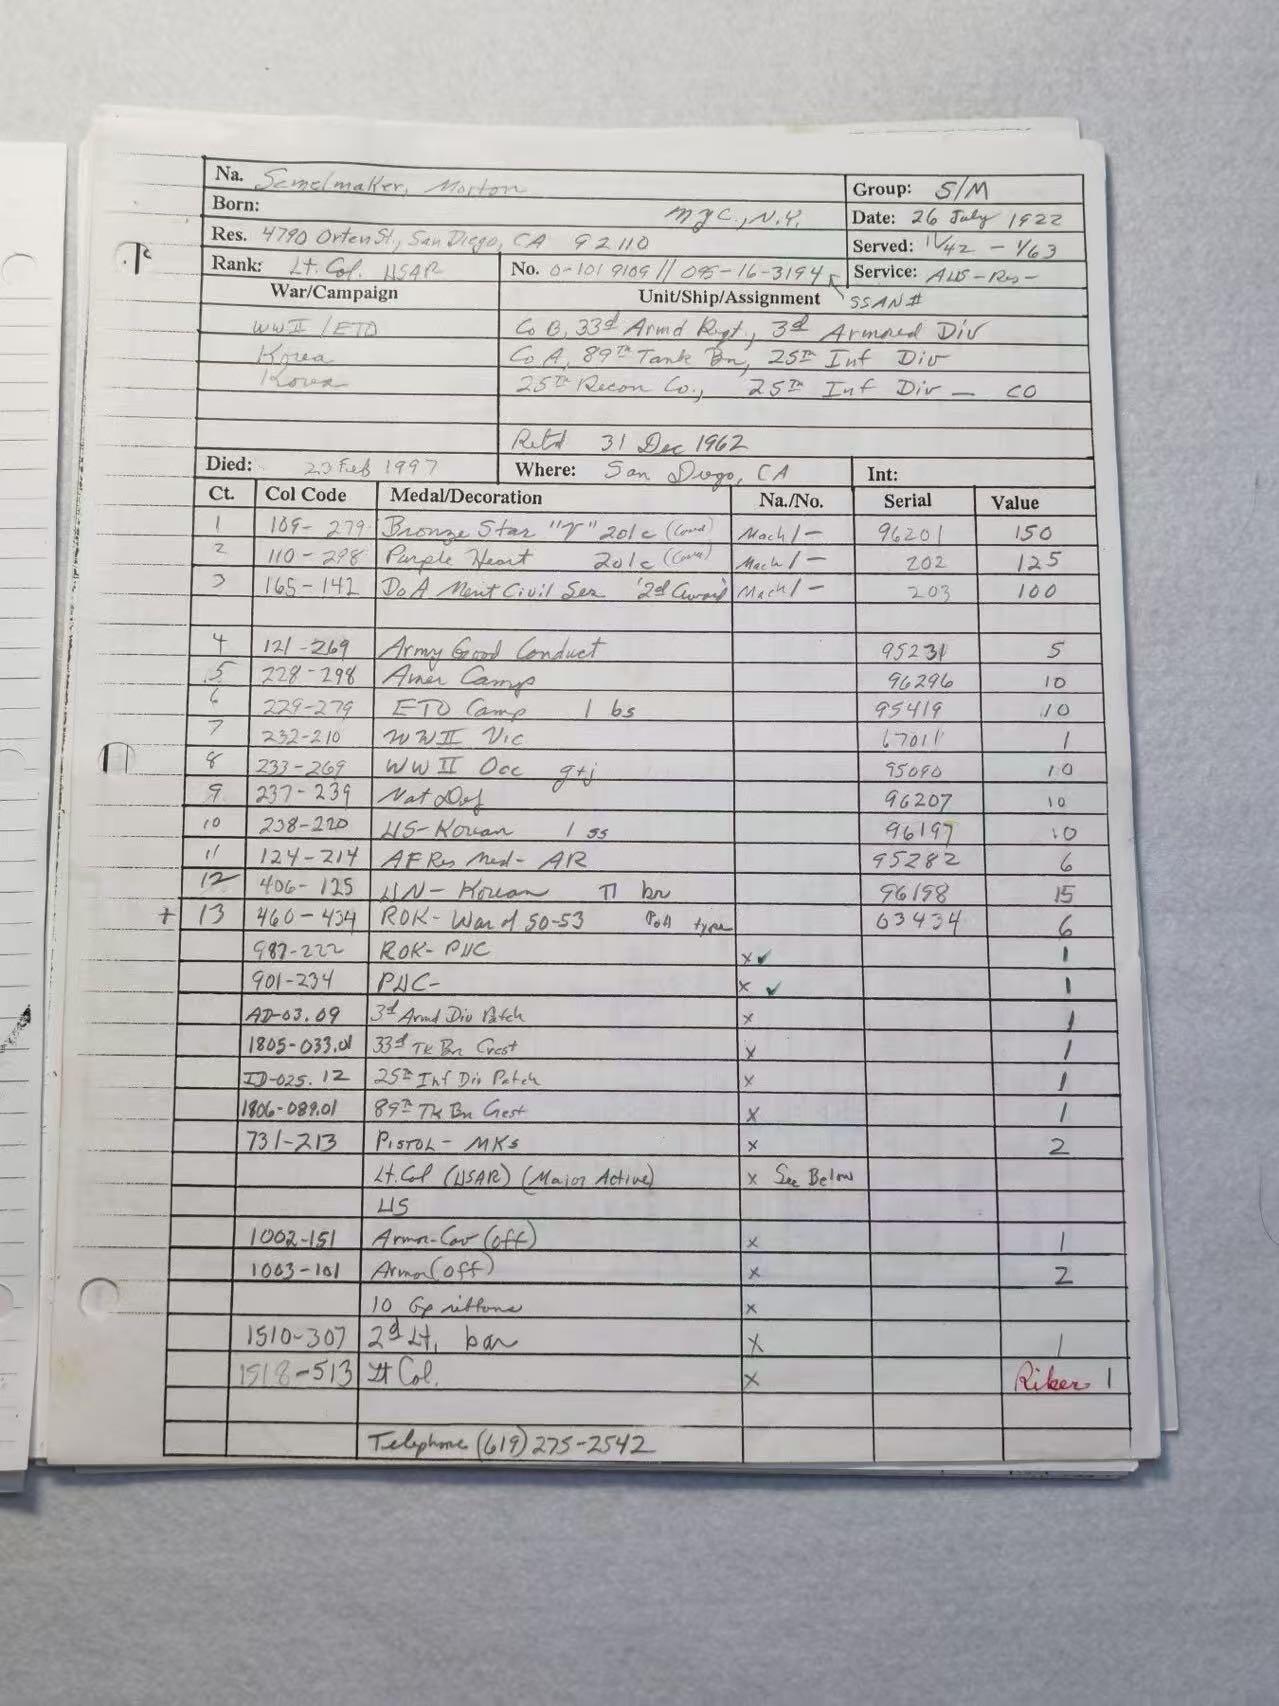 Na. Semelmaker, Morton
Group: S/M
Born: NYC., N.Y. Date: 26 July 1922
Res. 4790 Orten St., San Diego, CA 92110 Served: 11/42 - 1/63
Rank: Lt. Col. USAR No. 0-1019109 // 095-16-3194 Service: AUS-Res-
SSAN#
War/Campaign Unit/Ship/Assignment
WWII / ETO Co B, 33d Armd Rgt., 3d Armored Div
Korea Co A, 89th Tank Bn, 25th Inf Div
Korea 25th Recon Co., 25th Inf Div - CO
Retd 31 Dec 1962
Died: 23 Feb 1997 Where: San Diego, CA Int:
Ct. Col Code Medal/Decoration Na./No. Serial Value
1 109-279 Bronze Star "V" 2olc (Cased) Mach/- 96201 150
2 110-298 Purple Heart 2olc (Cased) Mach/- 202 125
3 165-142 DoA Merit Civil Ser '2d Award' Mach/- 203 100
4 121-269 Army Good Conduct 95231 5
5 228-298 Amer Camp 96296 10
6 229-279 ETO Camp 1 bs 95419 10
7 232-210 WWII Vic 67011 1
8 233-269 WWII Occ g+j 95090 10
9 237-239 Nat Def 96207 10
10 238-220 US-Korean 1 ss 96197 10
11 124-214 AF Res Med- AR 95282 6
12 406-125 UN-Korean TI br 96198 15
+ 13 460-434 ROK-War of 50-53 type 63434 6
987-222 ROK-PUC x✓ 1
901-234 PUC- x ✓ 1
AD-03.09 3d Armd Div Patch x 1
1805-033.01 33d Tk Bn Crest x 1
ID-025.12 25th Inf Div Patch x 1
1806-089.01 89th Tk Bn Crest x 1
731-213 PISTOL-MKs x 2
Lt. Col (USAR) (Major Active) x See Below
US
1002-151 Armor-Cav (off) x 1
1003-101 Armor (off) x 2
10 Gp ribbons x
1510-307 2d Lt. bar x 1
1518-513 Lt Col. x Riker 1
Telephone (619) 275-2542